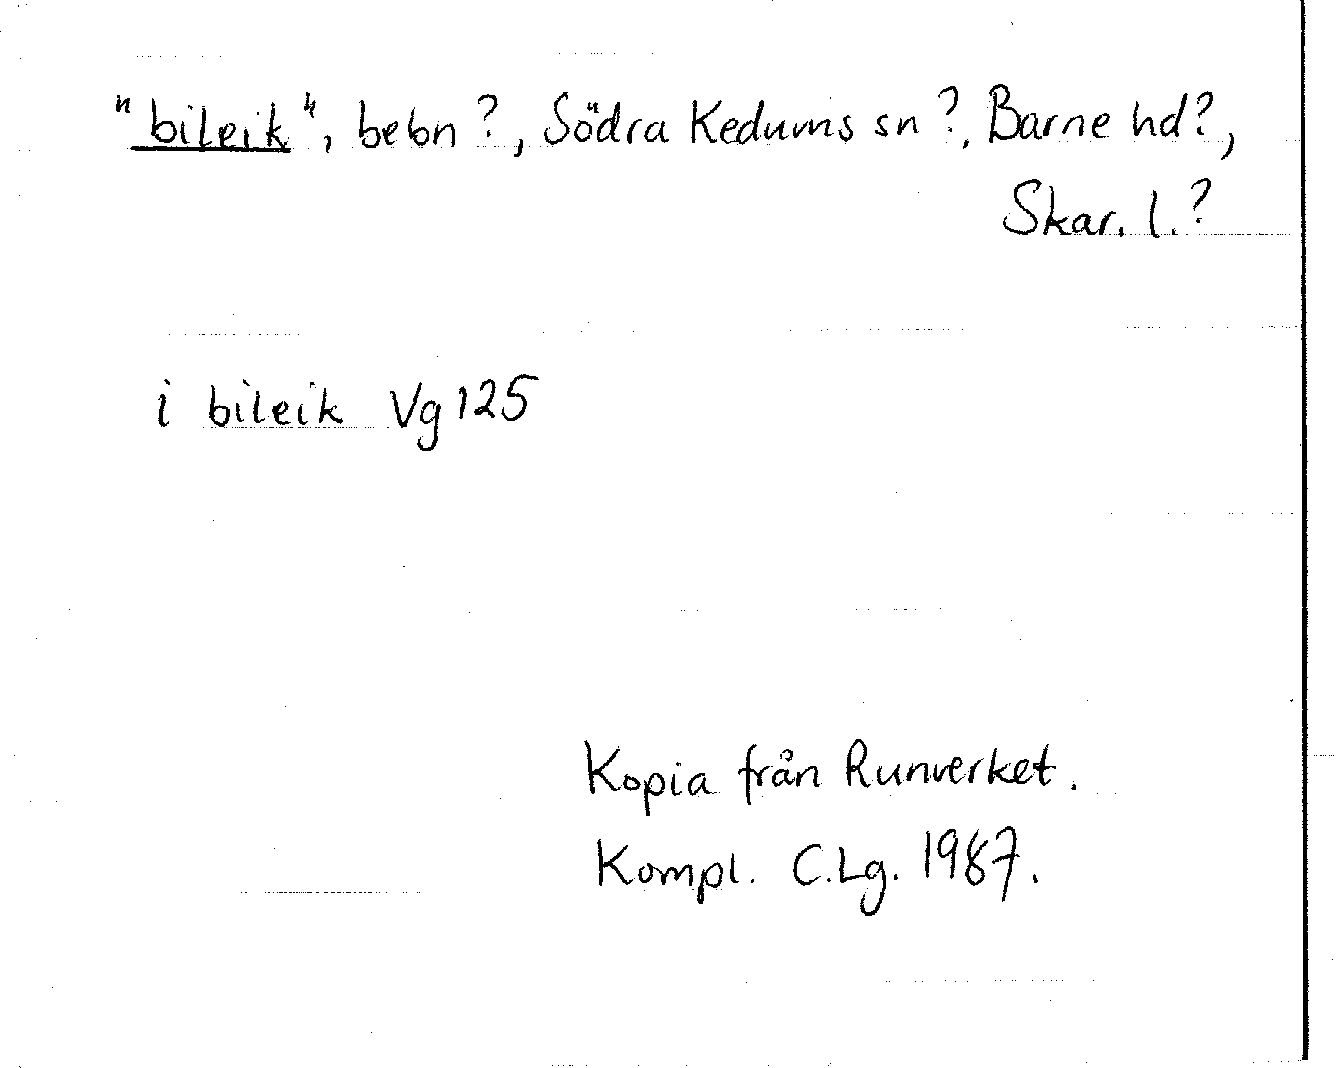 "bileik", bebn?, Södra Kedums sn?, Barne hd?,
Skar. l.?
i bileik Vg 125
Kopia från Runverket.
Kompl. C.Lg. 1987.